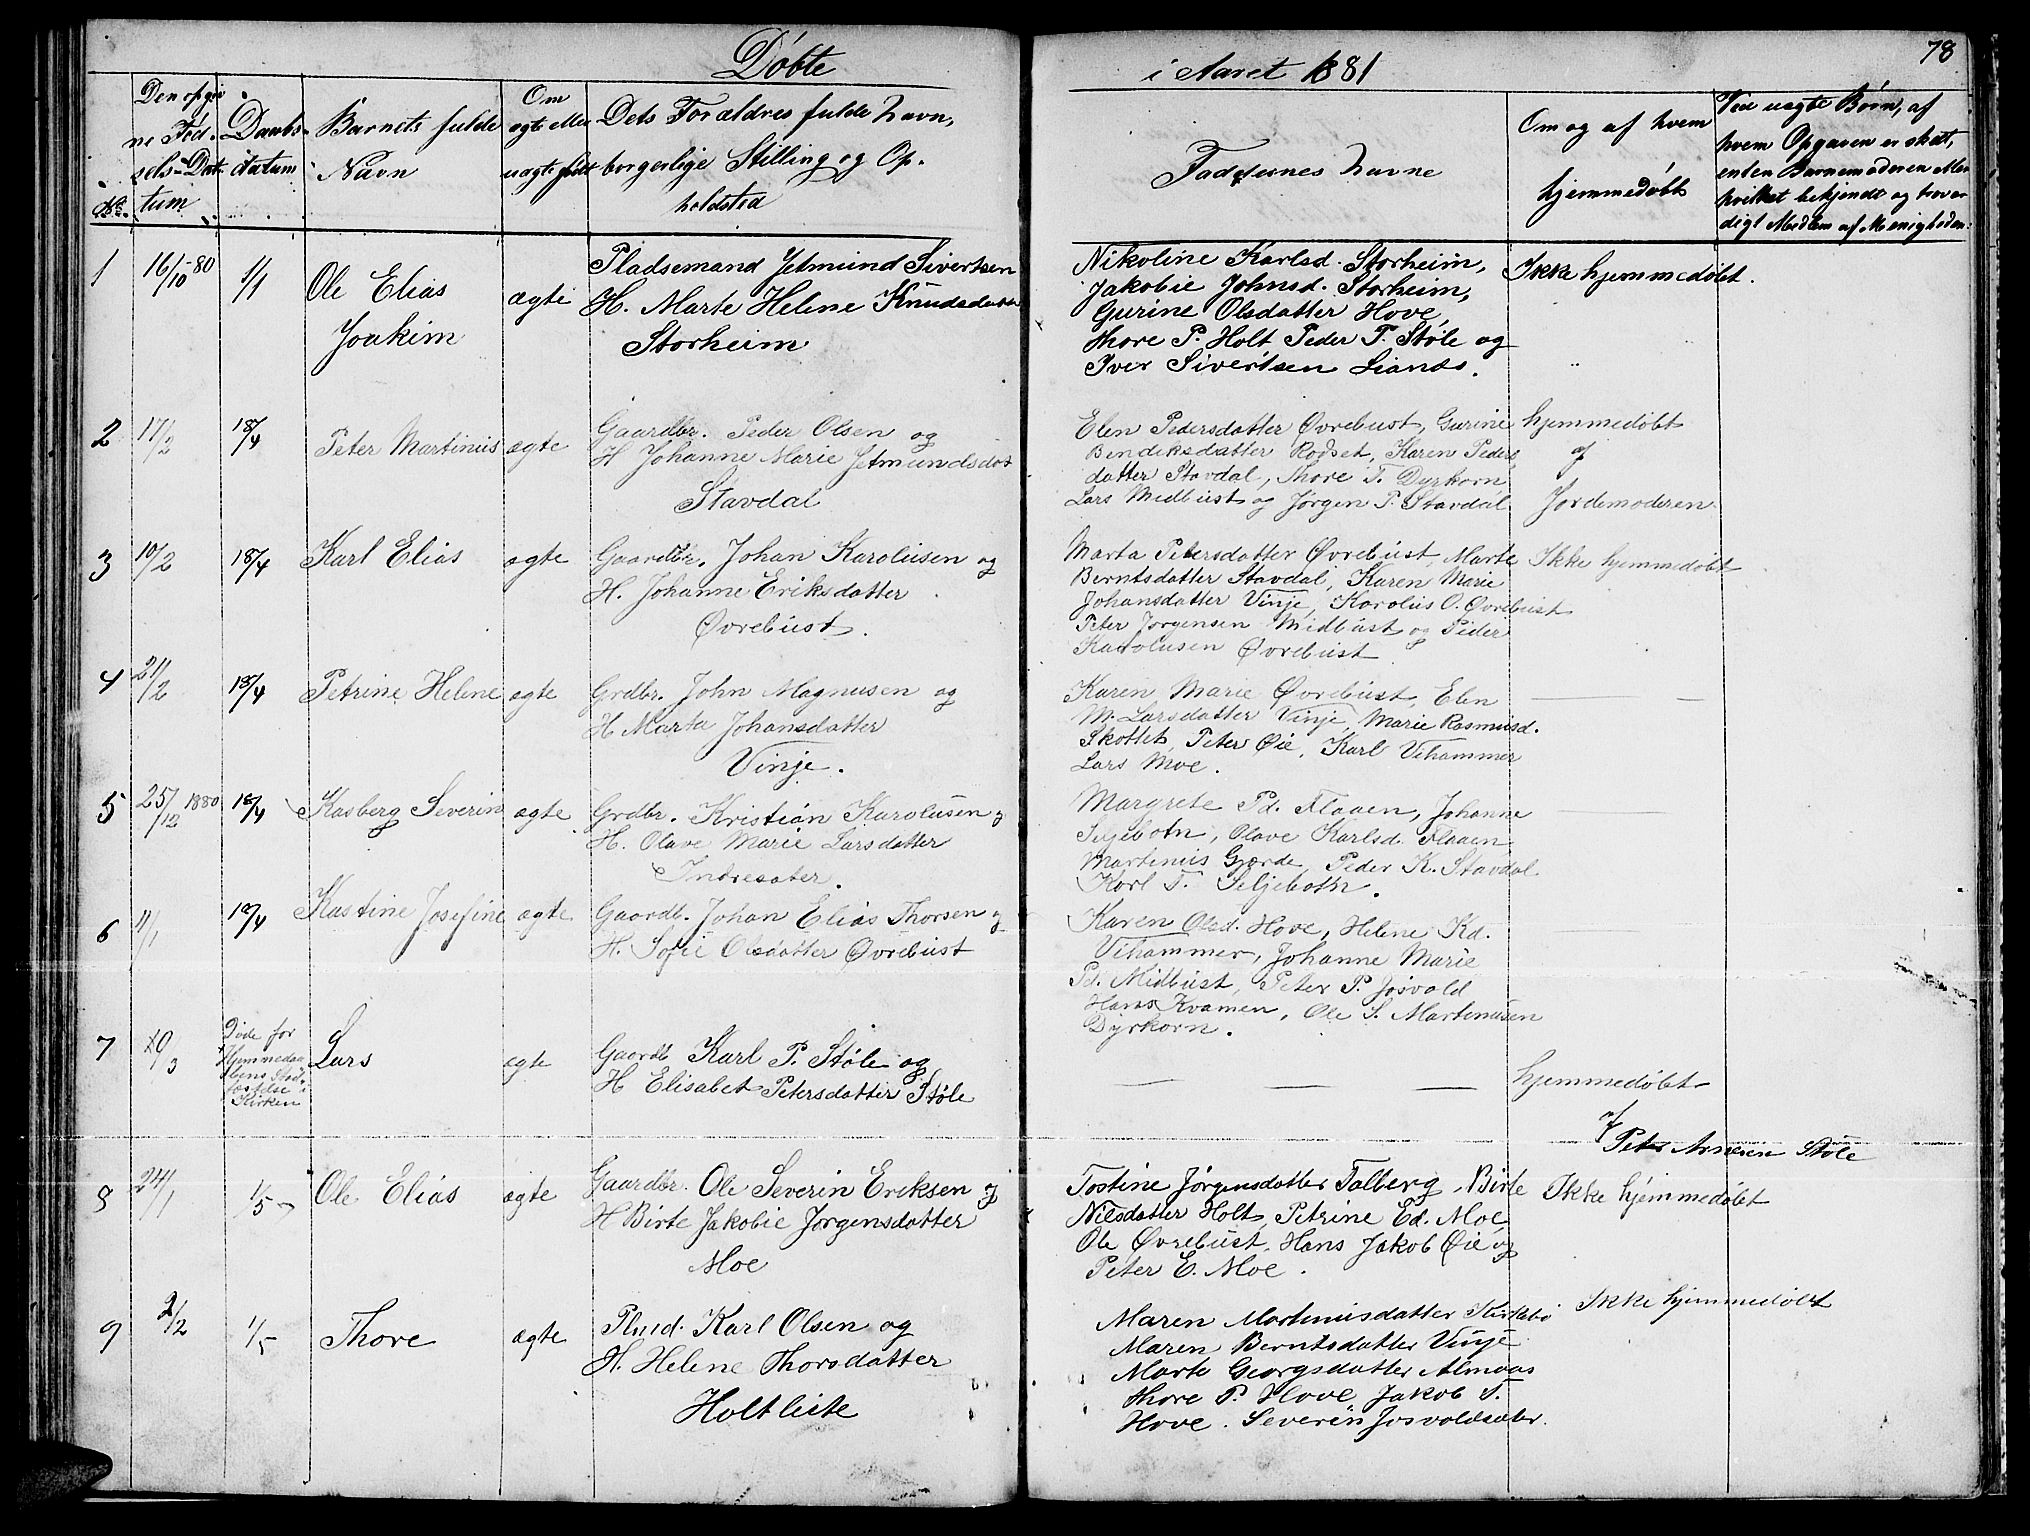 Døbte
i Aaret 1881
78
No.
Den opgiv
ne Fød-
sels-Da-
tum
Daabs-
datum
Barnets fulde
Navn
Om
ægte eller
uægte født
Dets Forældres fulde Navn,
borgerlige Stilling og Op-
holdsted
Faddernes Navne
Om og af hvem
hjemmedøbt
Ved uægte Børn, af
hvem Opgaven er skeet,
enten Barnemoderen eller
hvilket bekjendt og trovær
digt Medlem af Menigheden.
1
16/10-80
1/1
Ole Elias
Joakim
ægte
Pladsemand Jetmund Sivertsen
H. Marte Helene Knudsdatter
Storheim
Nikoline Karlsd. Storheim,
Jakobie Johnsd. Storheim,
Gurine Olsdatter Hove,
Thore P. Holt Peder T. Støle og
Iver Sivertsen Liands.
Ikke hjemmedøbt.
2
17/2
18/4
Peter Martinus
ægte
Gaardbr. Peder Olsen og
H Johanne Marie Jetmundsdat
Stavdal
Elen Pedersdatter Øvrebust, Gurine
Bendiksdatter Rødset, Karen Peders
datter Stavdal, Thore T. Dyrkorn
Lars Midbust og Jørgen P. Stavdal
hjemmedøbt
af
Jordemoderen
3
10/2
18/4
Karl Elias
ægte
Gaardbr. Johan Karolusen og
H. Johanne Eriksdatter
Øvrebust.
Marta Petersdatter Øvrebust, Marte
Berntsdatter Stavdal, Karen Marie
Johansdatter Vinje, Karolus O. Øvrebust
Peter Jørgensen Midbust og Peder
Karolusen Øvrebust
Ikke hjemmedøbt
4
21/2
18/4
Petrine Helene
ægte
Grdbr. John Magnusen og
H Marta Johansdatter
Vinje.
Karen Marie Øvrebust, Elen
M. Larsdatter Vinje, Marie Rasmusd.
Skottet, Peter Øie, Karl Vihammer
Lars Moe.
5
25/12 1880
18/4
Kasberg Severin
ægte
Grdbr. Kristian Karolusen og
H. Olave Marie Larsdatter
Indresæter.
Margrete Pd. Flaaen, Johanne
Seljebotn, Olave Karlsd. Flaaen
Martinus Gjærde, Peder K. Stavdal
Karl T. Seljebotn.
6
11/1
18/4
Kastine Josefine
ægte
Gaardb. Johan Elias Thorsen og
H. Sofie Olsdatter Øvrebust
Karen Olsd. Hove, Helene Kd.
Vihammer, Johanne Marie
Pd. Midbust, Peter P. Josvold
Hans Kvamen, Ole S. Martinusen
Dyrkorn.
7
10/3
Døde før
Hjemmedaa
bens Stad-
fæstelse i
Kirken
Lars
ægte
Gaardb Karl P. Støle og
H Elisabet Petersdatter Støle
hjemmedøbt
af
Peter Arnesen Støle
8
24/1
1/5
Ole Elias
ægte
Gaardbr. Ole Severin Eriksen og
H Birte Jakobie Jørgensdatter
Moe
Tostine Jørgensdatter Talberg, Birte
Nilsdatter Holt, Petrine Ed. Moe
Ole Øvrebust, Hans Jakob Øie og
Peter E. Moe.
Ikke hjemmedøbt
9
2/2
1/5
Thore
ægte
Plmd. Karl Olsen og
H. Helene Thorsdatter
Holtleite
Maren Martinusdatter Kirkebø
Maren Berntsdatter Vinje
Marte Georgsdatter Almaas
Thore P. Hove Jakob T.
Hove. Severin Josvoldsæter.
Ikke hjemmedøbt